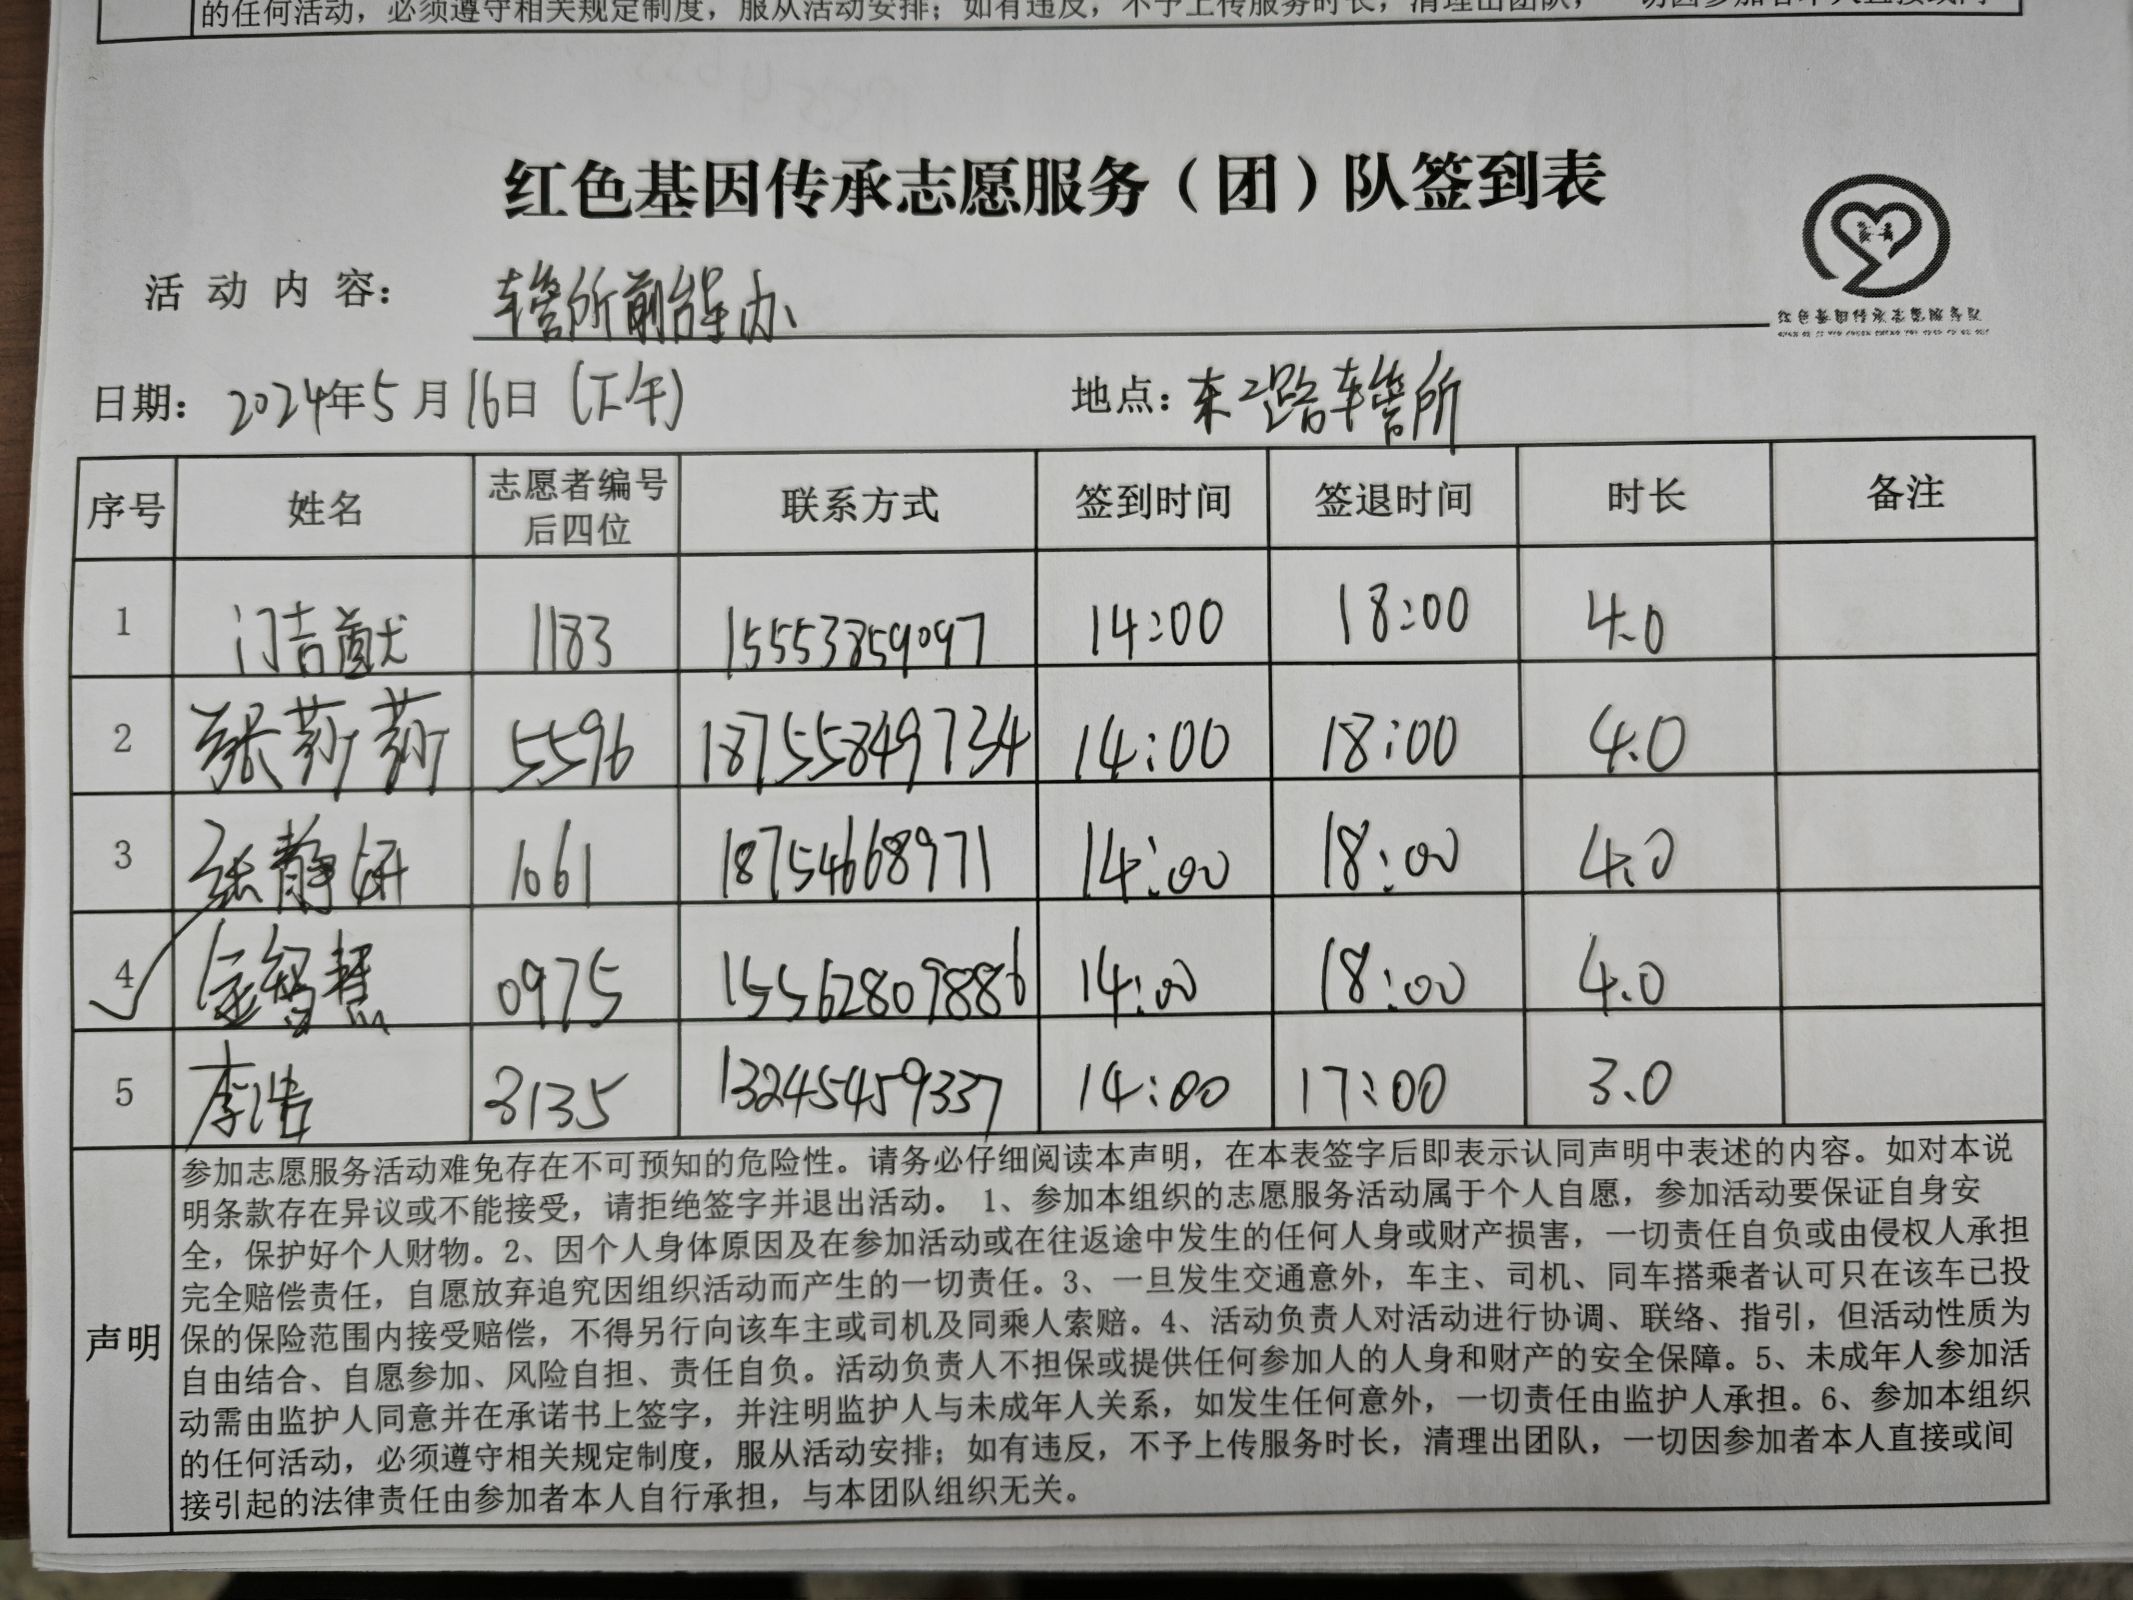 的任何活动，必须遵守相关规定制度，服从活动安排；如有违反，不予上传服务时长，清理出团队，一切因参加者本人直接或间
红色基因传承志愿服务（团）队签到表
活动内容： 车管所前台导办
日期： 2024年5月16日（下午） 地点：东二路车管所
序号 姓名 志愿者编号后四位 联系方式 签到时间 签退时间 时长 备注
1 门吉猷 1183 15553859097 14:00 18:00 4.0
2 张莎莎 5596 18755849734 14:00 18:00 4.0
3 张静妍 1061 18754668971 14:00 18:00 4.0
4 智慧 0975 15562809886 14:00 18:00 4.0
5 李浩 3135 13245459337 14:00 17:00 3.0
声明
参加志愿服务活动难免存在不可预知的危险性。请务必仔细阅读本声明，在本表签字后即表示认同声明中表述的内容。如对本说
明条款存在异议或不能接受，请拒绝签字并退出活动。 1、参加本组织的志愿服务活动属于个人自愿，参加活动要保证自身安
全，保护好个人财物。2、因个人身体原因及在参加活动或在往返途中发生的任何人身或财产损害，一切责任自负或由侵权人承担
完全赔偿责任，自愿放弃追究因组织活动而产生的一切责任。3、一旦发生交通意外，车主、司机、同车搭乘者认可只在该车已投
保的保险范围内接受赔偿，不得另行向该车主或司机及同乘人索赔。4、活动负责人对活动进行协调、联络、指引，但活动性质为
自由结合、自愿参加、风险自担、责任自负。活动负责人不担保或提供任何参加人的人身和财产的安全保障。5、未成年人参加活
动需由监护人同意并在承诺书上签字，并注明监护人与未成年人关系，如发生任何意外，一切责任由监护人承担。6、参加本组织
的任何活动，必须遵守相关规定制度，服从活动安排；如有违反，不予上传服务时长，清理出团队，一切因参加者本人直接或间
接引起的法律责任由参加者本人自行承担，与本团队组织无关。